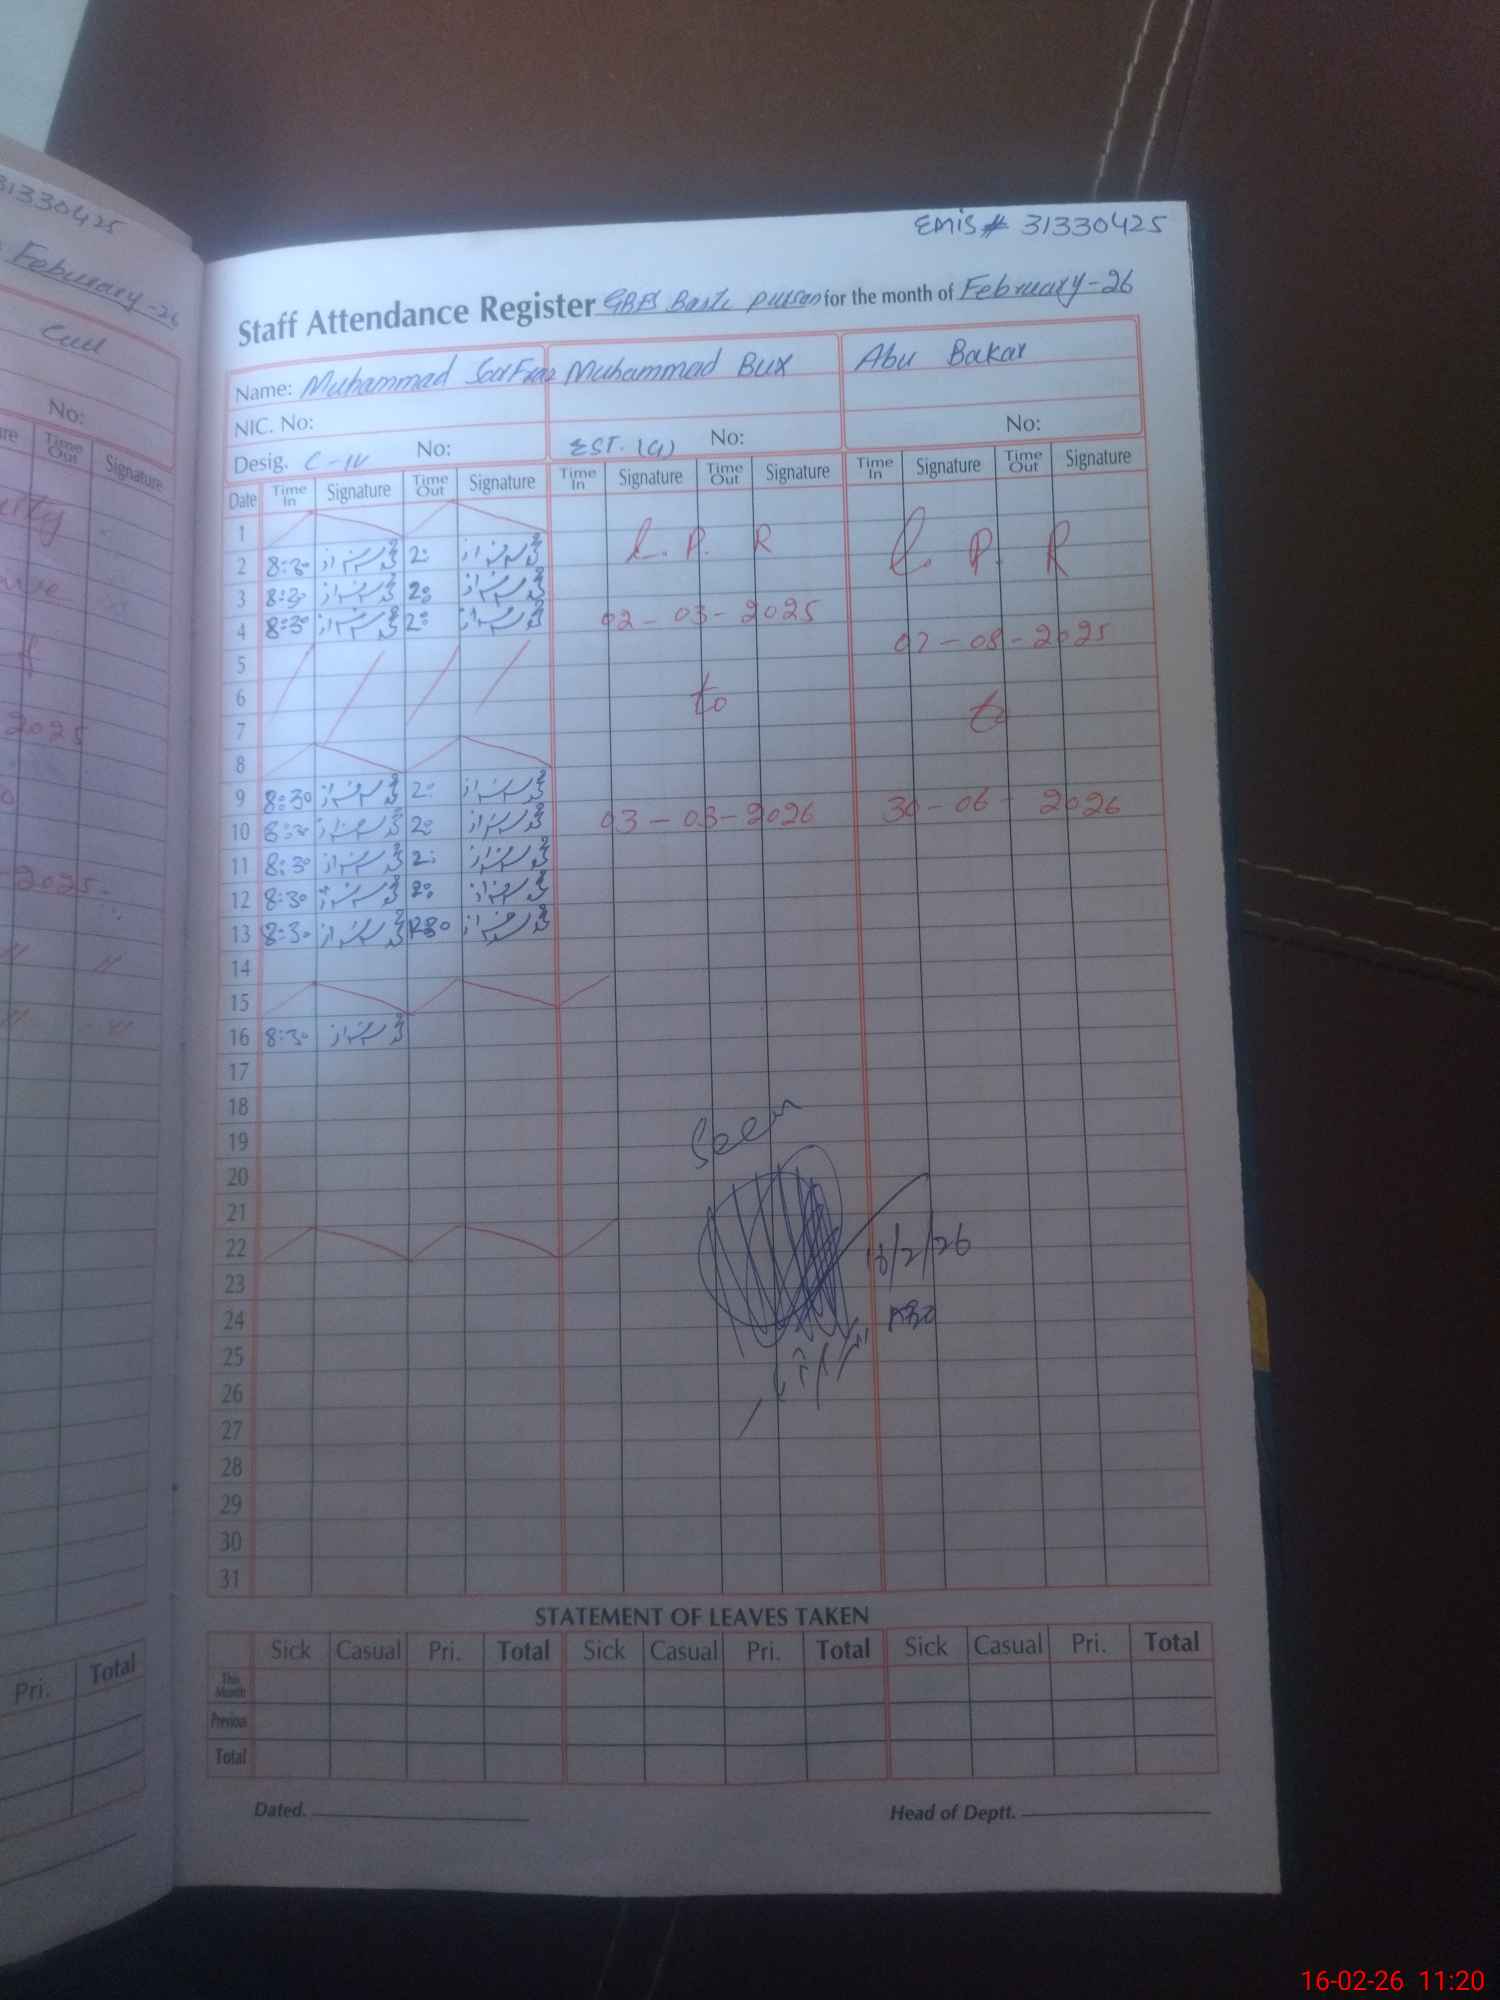 31330425
February-26
No:
Time Out Signature
2025
2025-
Pri. Total
EMIS # 31330425
Staff Attendance Register for the month of February-26
Name: Muhammad Sarfraz Muhammad Bux Abu Bakar
NIC. No:
Desig. C-IV No: EST. (G) No: No:
Date Time In Signature Time Out Signature Time In Signature Time Out Signature Time In Signature Time Out Signature
1
2 8:30 سرفراز 2: سرفراز L. P. R L. P. R
3 8:30 سرفراز 2: سرفراز
4 8:30 سرفراز 2: سرفراز 02-03-2025 02-08-2025
5
6 to to
7
8
9 8:30 سرفراز 2: سرفراز
10 8:30 سرفراز 2: سرفراز 03-03-2026 30-06-2026
11 8:30 سرفراز 2: سرفراز
12 8:30 سرفراز 2: سرفراز
13 8:30 سرفراز سرفراز
14
15
16 8:30 سرفراز
17
18
19 Seen
20
21
22 16/2/26
23
24
25
26
27
28
29
30
31
STATEMENT OF LEAVES TAKEN
Sick Casual Pri. Total Sick Casual Pri. Total Sick Casual Pri. Total
This Month
Previous
Total
Dated. Head of Deptt.
16-02-26 11:20